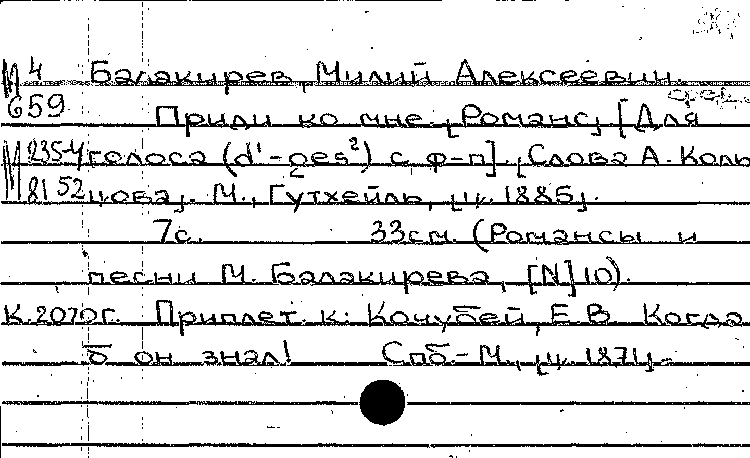 М 4 Балакирев, Милий Алексеевич.
659 Приди ко мне. [Романс]. [Для
М 235-4 голоса (d¹-ges²) с ф-п]. [Слова А. Коль-
81 52 цова]. М., Гутхейль, [ц. 1885].
7с. 33см. (Романсы и
песни М. Балакирева, [N] 10).
К. 2070г. Приплет. к: Кочубей, Е.В. Когда
б он знал! Спб.-М., [ц. 1871].